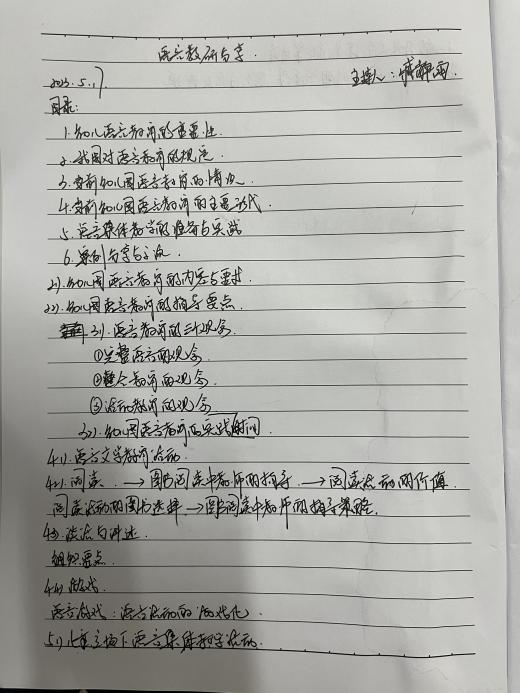 语言教研分享.
2023.5.17. 主持人:
目录:
1.幼儿语言教育的重要性.
2.我国对语言教育的规定.
3.当前幼儿园语言教育的情况.
4.当前幼儿园语言教育的主要形式.
5.语言集体教学的准备与实践
6.案例分享与交流.
2.1.幼儿园语言教育的内容与要求.
2.2.幼儿园语言教育的指导要点.
3.1.语言教育的三种观念.
①完整语言的观念.
②整合教育的观念.
③活动教育的观念.
3.2.幼儿园语言教育的实践时间
4.1.语言文学教育活动.
4.2.阅读. →图书阅读中教师的指导. →阅读活动的价值.
阅读活动的图书选择→图书阅读中教师的指导策略.
4.3.谈话与讲述.
组织要点.
4.4.游戏.
语言游戏:语言活动的游戏化.
5.1.儿童立场下语言集体教学活动.